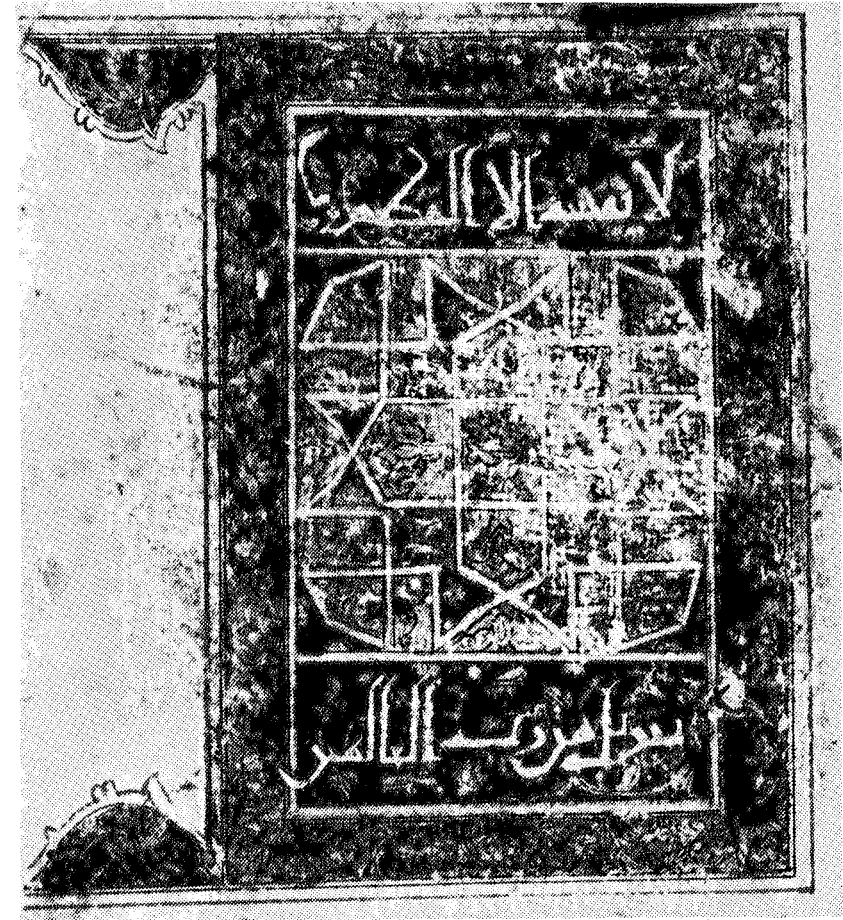 لا يمسه الا المطهرون
تنزيل من رب العالمين